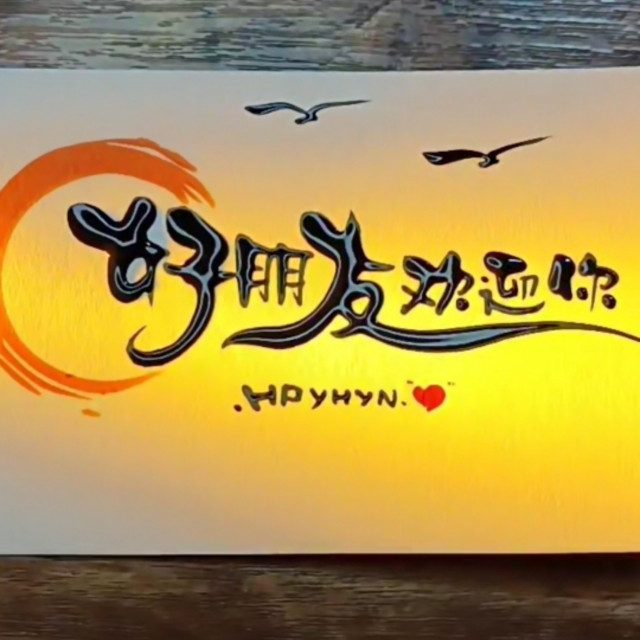 好朋友欢迎你
.HPYHYN.